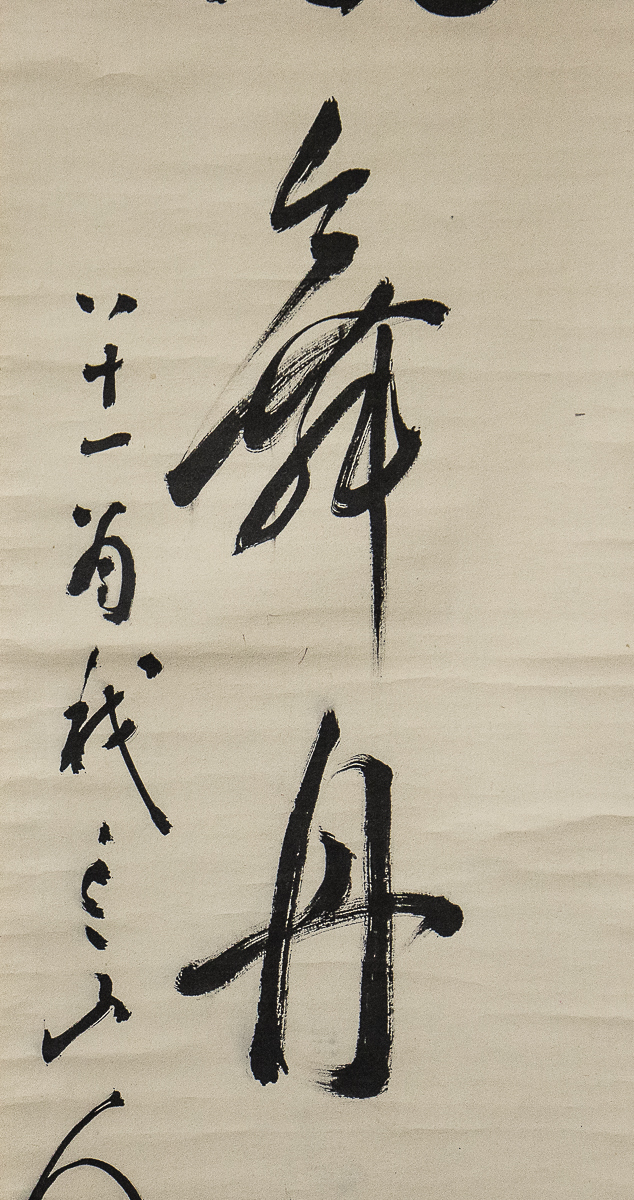 舞丹
八十一翁 山人